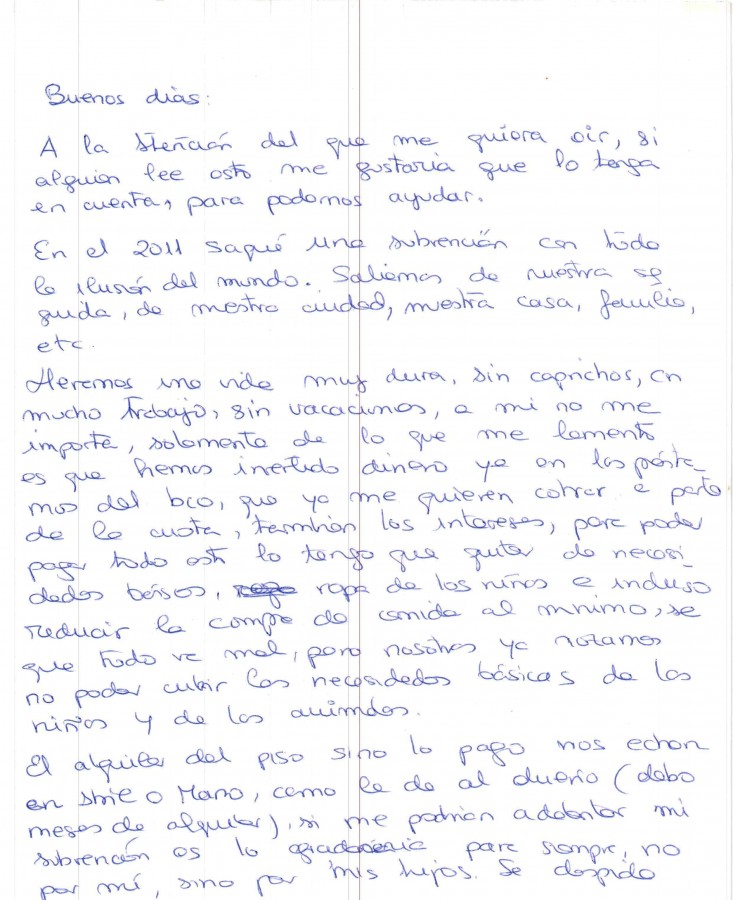 Buenos días:
A la Atención del que me quiera oir, si
alguien lee esto me gustaría que lo tenga
en cuenta, para podernos ayudar.
En el 2011 saqué una subvención con todo
la ilusión del mundo. Saliamos de nuestra se
guida, de nuestra ciudad, nuestra casa, familia,
etc.
una vida muy dura, sin caprichos, con
mucho trabajo, sin vacaciones, a mi no me
importa, solamente de lo que me lamento
es que hemos invertido dinero ya en los présta-
mos del bco, que ya me quieren cobrar a parte
de la cuota, también los intereses, para poder
pagar todo esto lo tengo que quitar de necesi-
dades básicas, ropa de los niños e incluso
reducir la compra de comida al mínimo, se
que todo va mal, pero nosotros ya notamos
no poder cubrir las necesidades básicas de los
niños y de los animales.
El alquiler del piso sino lo pago nos echan
en Abril o Marzo, como le de al dueño (debo
meses de alquiler), si me podrían adelantar mi
subvención os lo agradeceria para siempre, no
por mí, sino por mis hijos. Se despide